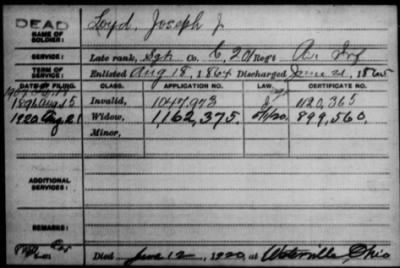 DEAD
NAME OF SOLDIER: Loyd, Joseph J.
SERVICE: Late rank, Sgt Co. C, 201 Reg't Pa. Inf
TERM OF SERVICE: Enlisted Aug 18, 1864 Discharged June 21, 1865
DATE OF FILING. CLASS. APPLICATION NO. LAW. CERTIFICATE NO.
1896 Aug 15 Invalid, 1047,973 1120,365
1920 Aug 21 Widow, 1,162,375. 899,560.
Minor,
ADDITIONAL SERVICES:
REMARKS:
Died June 12, 1920, at Waterville Ohio